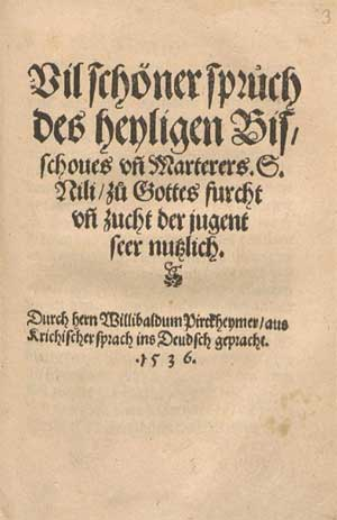 3
Vil schöner sprüch
des heyligen Bis/
schoues vñ Marterers. S.
Nili / zů Gottes furcht
vñ zucht der jugent
seer nutzlich.
Durch hern Willibaldum Pirckheymer / aus
Krichischer sprach ins Deudsch gepracht.
.1536.